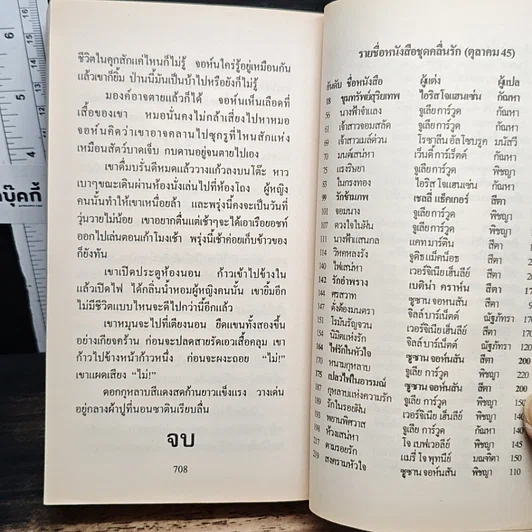 ชีวิตในคุกสักแค่ไหนก็ไม่รู้ จอห์นใครู้อยู่เหมือนกัน
แล้วเขาก็ยิ้ม ป่านนี้มันเป็นบ้าไปหรือยังก็ไม่รู้
มองค์อาจตายแล้วก็ได้ จอห์นเห็นเลือดที่
เสื้อของเขา หมอนั่นคงไม่กล้าเสี่ยงไปหาหมอ
จอห์นคิดว่าเขาอาจคลานไปซุกรูที่ไหนสักแห่ง
เหมือนสัตว์บาดเจ็บ กบดานอยู่จนตายไปเอง
เขาดื่มบรั่นดีหมดแล้ววางแก้วลงบนโต๊ะ หาว
เบาๆขณะเดินผ่านห้องนั่งเล่นไปที่ห้องโถง ผู้หญิง
คนนั้นทำให้เขาเหนื่อยล้า และพรุ่งนี้คงจะเป็นวันที่
วุ่นวายไม่น้อย เขาอยากตื่นแต่เช้าๆจะได้เอาเรือยอชท์
ออกไปเล่นตอนเก้าโมงเช้า พรุ่งนี้เช้าค่อยเก็บข้าวของ
ก็ยังทัน
เขาเปิดประตูห้องนอน ก้าวเข้าไปข้างใน
แล้วเปิดไฟ ได้กลิ่นน้ำหอมผู้หญิงคนนั้น เขายิ้มอีก
ไม่มีชีวิตแบบไหนจะดีไปกว่านี้อีกแล้ว
เขาหมุนจะไปที่เตียงนอน ยืดแขนทั้งสองขึ้น
อย่างเกียจคร้าน ก่อนจะปลดสายรัดเอวเสื้อคลุม เขา
ก้าวไปข้างหน้าก้าวหนึ่ง ก่อนจะผงะถอย "ไม่!"
เขาแผดเสียง "ไม่!"
ดอกกุหลาบสีแดงสดก้านยาวแข็งแรง วางเด่น
อยู่กลางผ้าปูที่นอนซาตินเรียบลื่น
จบ
708
รายชื่อหนังสือชุดคลื่นรัก (ตุลาคม 45)
อันดับ ชื่อหนังสือ ผู้แต่ง ผู้แปล
18 ขุมทรัพย์สุริยเทพ ไอริส โจแฮนเซ่น กัณหา
56 นางฟ้าจำแลง จูเลีย การ์วูด กัณหา
61 เจ้าสาวจอมสลัด จูเลีย การ์วูด กัณหา
69 เจ้าสาวเมล์ด่วน โรซาลีน อัลโซบรูค มนัสวี
70 มนต์เสน่หา เวนดี้ การ์เร็ตต์ กัณหา
75 แรงริษยา จูเลีย การ์วูด พิชญา
83 ในกรงทอง ไอริส โจแฮนเซ่น กัณหา
98 รักข้ามภพ เชลลี่ แธ็คเกอร์ สีตา
101 จอมนาง จูเลีย การ์วูด พิชญา
107 ดวงใจในฝัน จูเลีย การ์วูด กัณหา
111 นางฟ้าแสนกล แคท มาร์ติน สีตา
114 วิหคหลงรัง จูดิธ แม็คน็อธ สีตา
140 ไฟเสน่หา เวอร์จิเนีย เฮ็นลีย์ สีตา
142 รักอำพราง เบติน่า คราห์น สีตา
144 ศรสวาท ซูซาน จอห์นสัน สีตา
147 ดั่งต้องมนตรา จิลล์ บาร์เน็ตต์ ณัฐภัทรา
151 โรมันรัญจวน เวอร์จิเนีย เฮ็นลีย์ สีตา
154 นิมิตแห่งรัก จิลล์ บาร์เน็ตต์ ณัฐภัทรา
164 ไฟรักในหัวใจ ซูซาน จอห์นสัน สีตา
170 หนามกุหลาบ จูเลีย การ์วูด พิชญา
175 เปลวไฟในอารมณ์ ซูซาน จอห์นสัน สีตา
187 กุหลาบแห่งความรัก จูเลีย การ์วูด พิชญา
189 รักในรอยฝัน เวอร์จิเนีย เฮ็นลีย์ พิชญา
193 พยานพิศวาส จูเลีย การ์วูด กัณหา
198 ห้วงเสน่หา โจ เบฟเวอลีย์ พิชญา
217 ตามรอยรัก แมรี่ โจ พุทนีย์ มณฑิตา 150
219 สงครามหัวใจ ซูซาน จอห์นสัน พิชญา 110
บุ๊คกี้